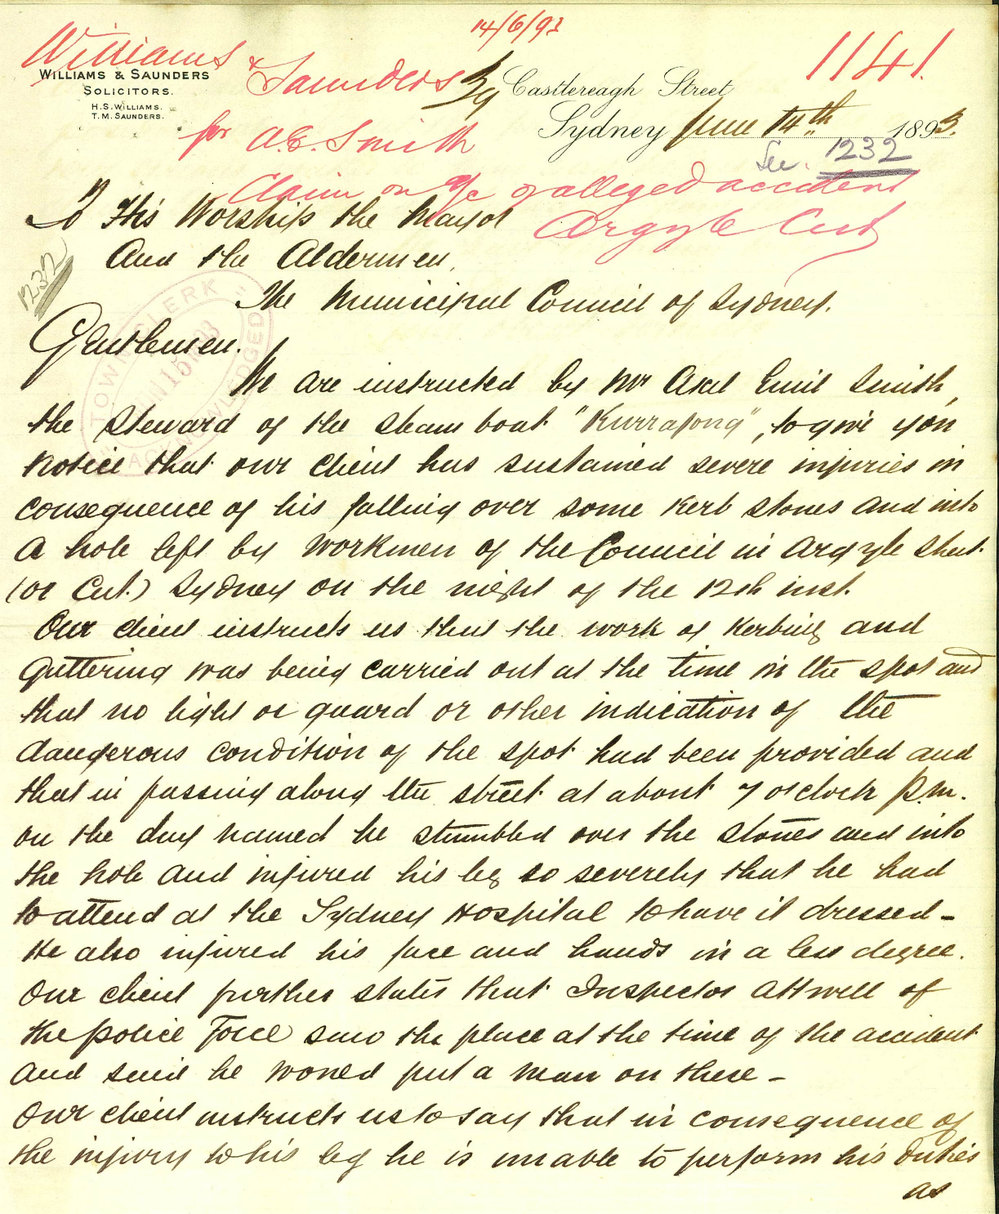 14/6/93
Williams & Saunders
1141.
WILLIAMS & SAUNDERS
SOLICITORS.
H.S. WILLIAMS.
T.M. SAUNDERS.
for A.E. Smith
39 Castlereagh Street
Sydney June 14th 1893.
See 1232
Claim on a/c of alleged accident
Argyle Cut
To His Worship the Mayor
And the Aldermen,
The Municipal Council of Sydney.
1232
TOWN CLERK
JUN 15 1893
ACKNOWLEDGED
Gentlemen.
We are instructed by Mr Axel Emil Smith,
the steward of the steam boat "Kurrapong", to give you
Notice that our client has sustained severe injuries in
consequence of his falling over some kerb stones and into
a hole left by workmen of the Council in Argyle Street
(or Cut.) Sydney on the night of the 12th inst.
Our client instructs us that the work of kerbing and
guttering was being carried out at the time in the spot and
that no light or guard or other indication of the
dangerous condition of the spot had been provided and
that in passing along the street at about 7 o'clock p.m.
on the day named he stumbled over the stones and into
the hole and injured his leg so severely that he had
to attend at the Sydney Hospital to have it dressed -
He also injured his face and hands in a less degree.
Our client further states that Inspector Attwell of
the police Force saw the place at the time of the accident
and said he would put a man on there -
Our client instructs us to say that in consequence of
the injury to his leg he is unable to perform his duties
as